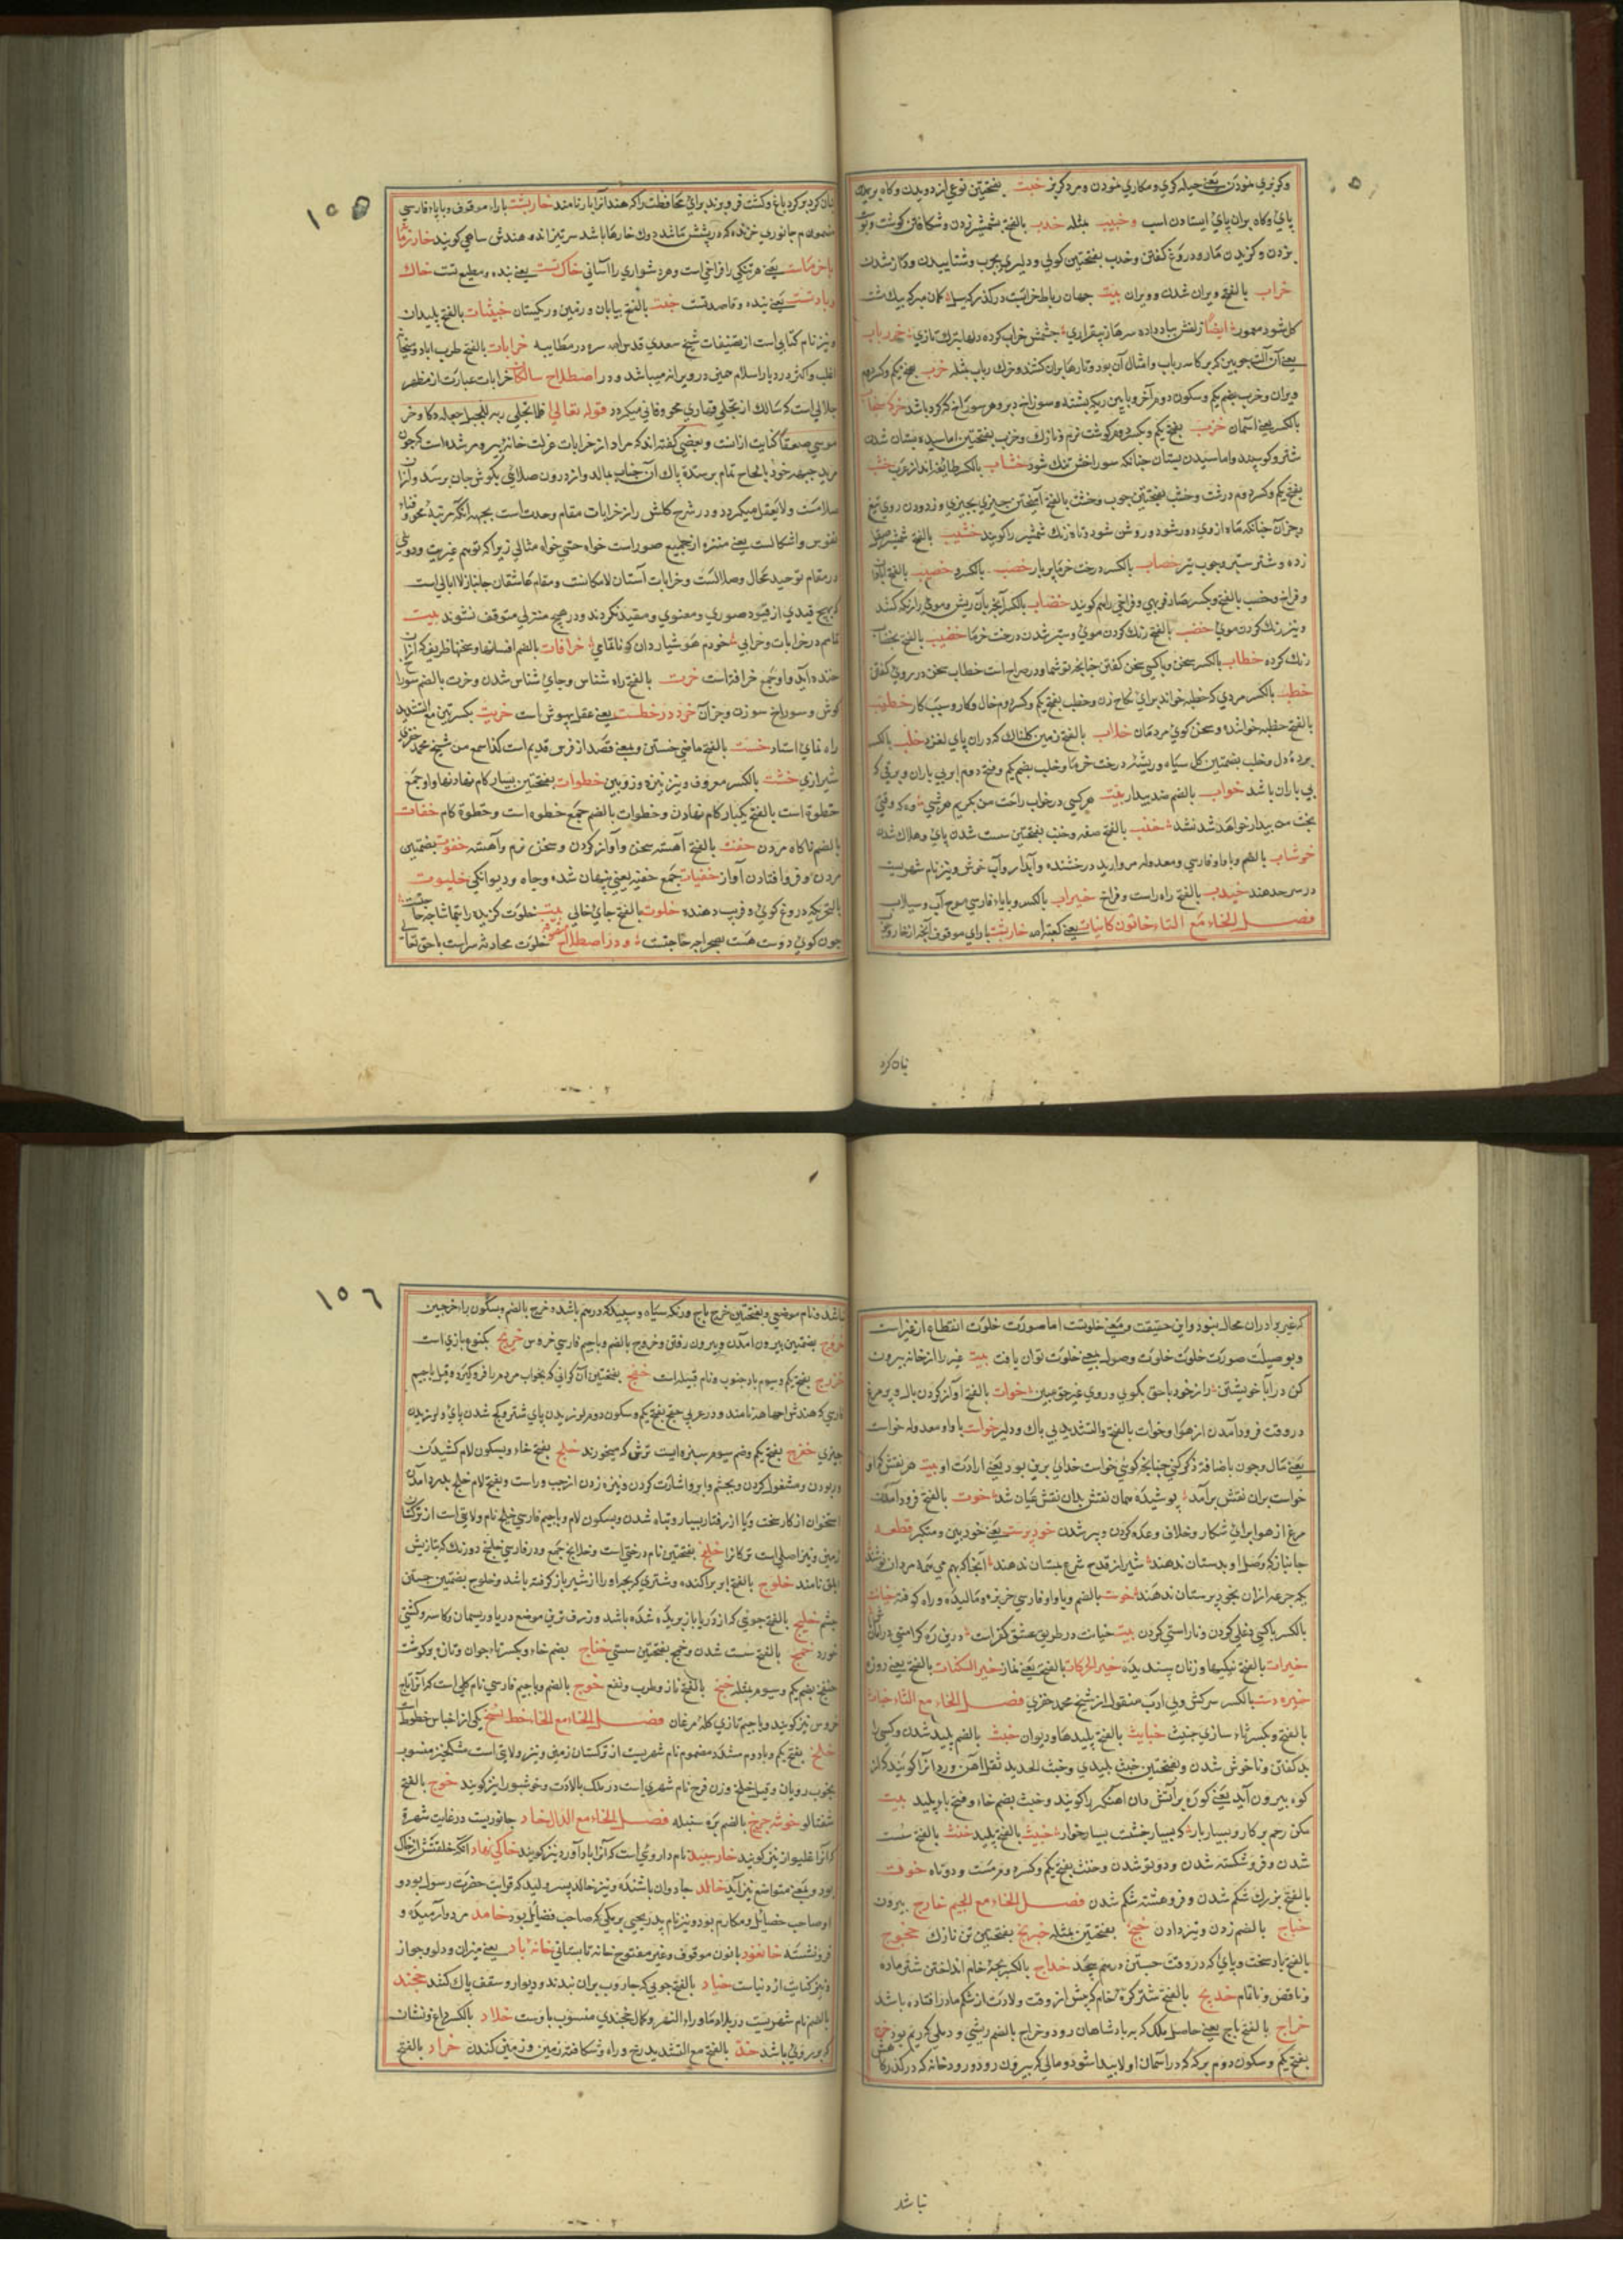 وکربزی نمودن یعنی حیله کری و مکاری نمودن و مرد کربز خبت بفتحتین نوعی از دویدن و کاه بریک
پای و کاه بران پای ایستادن اسب و خبیب مثله خدب بالفتح بشمشیر زدن و شکافتن کوشت و پوست
بزدن و کزیدن مار و دروغ کفتن و خدب بفتحتین کولی و دلیری بچوب و شتابیدن و دراز شدن
خراب بالفتح ویران شدن و ویران بیت جهان رباط خرابست در کذرکه سیل کمان مبر که بیک مشت
کل شود معمور ایضا زلفش بباد داده سرها ز بیقراری چشمش خراب کرده دلها بترک تازی خر رباب
یعنی آن آلت چوبین که بر کاسه رباب و امثال آن بود و تارها بران کشند و خرک رباب مثله خرب بفتح یکم و کسر دوم
ویران و خرب بضم یکم و سکون دوم
بالکسر یعنی آسمان خزب بفتح یکم و کسر دوم کوشت نرم و نازک و خزب بفتحتین اماسیده پستان شدن
شتر و کوسپند و اماسیدن پستان چنانکه سوراخش تنک شود خشاب بالکسر طایفه اند از عرب خشب
بفتح یکم و کسر دوم درشت و خشب بفتحتین چوب و خشب بالفتح آمیختن چیزی بچیزی و زدودن روی تیغ
و جزآن چنانکه ماه ازوی دور شود و روشن شود و تاه زنک شمشیر را کویند خشیب بالفتح شمشیر
زده و شتر ستبر و چوب تیر خصاب بالکسر درخت خرما پر بار خصب بالکسر خصیب بالفتح
و فراخ و خصب بالفتح و بکسر صاد فربهی و فراخی راهم کویند خضاب بالکسر آنچه بآن ریش و موی را رنک کنند
و نیز رنک کردن موی خضب بالفتح رنک کردن موی و سبز شدن درخت خرما خضیب بالفتح بخضاب
رنک کرده خطاب بالکسر سخن و با کسی سخن کفتن چنانچه تو شما و در صراح است خطاب سخن در روی کفتن
خطب بالکسر مردی که خطبه خواند برای نکاح زن و خطب بفتح یکم و کسر دوم حال و کار و سبب کار خطیب
بالفتح خطبه خواننده و سخن کوی مردمان خلاب بالفتح زمین کلناک که دران پای لغزد خلب بالکسر
پرده دل و خلب بضمتین کل سیاه و ریشه درخت خرما و خلب بضم یکم و فتح دوم ابر بی باران و برقی که
بی باران باشد خواب بالضم ضد بیدار بیت هر کسی در خواب راحت من بکریم هر شبی وه که وقتی
بخت من بیدار خواهد شد نشد خنب بالفتح صفه و خنب بفتحتین سست شدن پای و هلاک شدن
خوشاب بالضم و با واو فارسی و معدوله مروارید درخشنده و آبدار و آب خوش و نیز نام شهریست
در سر حد هند خیدب بالفتح راه راست و فراخ خیراب بالکسر و با یاء فارسی موج آب و سیلاب
فصل الخاء مع التاء خاتون کاینات یعنی کعبه الله خاربست با رای موقوف آنچه از خار
نان کرد
۱۵۵
نان کرد بر کرد باغ و کشت فرو برند برای محافظت را که هند آنرا بار نامند خارپشت با راء موقوف و با پاء فارسی
مضموم م جانوری خزنده که در پشتش مانند دوک خارها باشد سر تیز انده هندش ساهی کویند خار
با خرماست یعنی هر تنکی را فراخی است و هر دشواری را آسانی خاک تست یعنی بنده و مطیع تست خاک
و باد تست یعنی بنده و قاصد تست خبت بالفتح بیابان و زمین و ریکستان خبیثات بالفتح پلیدات
و نیز نام کتابی است از تصنیفات شیخ سعدی قدس الله سره در مطایبه خرابات بالفتح طرب اباد
اغلب و اکثر در دیار اسلام همین در ویرانه میباشد و در اصطلاح سالکان خرابات عبارت از مظهر
جلالی است که سالک از تجلی قهاری محو و فانی میکردد قوله تعالی فلما تجلی ربه للجبل جعله دکا و خر
موسی صعقا کنایت ازانست و بعضی کفته اند که مراد از خرابات عزلت خانه پیر و مرشد است که چون
مرید جبهه خود بالحاح تمام بر سده پاک آن جناب بمالد و از درون صدائی بکوش جان برسد و ازان
سلامت ولا یعقل میکردد و در شرح کلشن راز خرابات مقام وحدت است بجهه آنکه مرتبه محو و فناء
نفوس و اشکالست یعنی منزه از جمیع صور است خواه حسی خواه مثالی زیرا که توهم غیریت و دوئی
در مقام توحید محال و ضلالست و خرابات آستان لامکانست و مقام عاشقان جانباز لاابالی است
که بهیچ قیدی از قیود صوری و معنوی و مقید نکردند و در هیچ منزلی متوقف نشوند بیت
خراباتی و خرابی خودم هوشیار دان خرافات بالضم افسانها و سخنها ظریف که ازان
خنده آید و او جمع خرافت است خرت بالفتح راه شناس و جای شناس شدن و خرت بالضم سوراخ
کوش و سوراخ سوزن و جزآن خرد درخطست یعنی عقل بیهوش است خریت بکسرتین مع التشدید
راه نمای استاد خست بالفتح ماضی خستن و بمعنی قصد از فرس قدیم است کذا سمع من شیخ محمد خضری
شیرازی خشت بالکسر معروف و نیز نیزه و زوبین خطوات بفتحتین بسیار کام نهادنها و او جمع
خطوة است بالفتح یکبار کام نهادن و خطوات بالضم جمع خطوه است و خطوة کام خفات
بالضم ناکاه مردن خفت بالفتح آهسته سخن و آواز کردن و سخن نرم و آهسته خفوت بضمتین
مردن و فرو افتادن آواز خفیات جمع خفیه یعنی پنهان شده و چاه و دیوانکی خلبوت
بالتحریک دروغ کوی و فریب دهنده خلوت بالفتح جای خالی بیت خلوت کزیده را بتماشا چه حاجتست
چون کوی دوست هست بصحرا چه حاجتست و در اصطلاح متصوفه خلوت محادثه سر است با حق تعالی
که غیر برادران محال نبود و این حقیقت و معنی خلوتست اما صورت خلوت انقطاع از غیر است
و بوصیلت صورت خلوت خلوت وصول بمعنی خلوت توان یافت بیت غیر را از خانه بیرون
کن درآ با خویشتن راز خود با حق بکوی و روی غیر حق مبین خوات بالفتح آواز کردن بال و پر مرغ
در وقت فرود آمدن از هوا و خوات بالفتح والتشدید بی باک و دلیر خواست با واو معدوله خواست
یعنی مال و چون باضافه ذکر کنی چنانچه کوئی خواست خدای برین بود یعنی ارادت او بیت هر نقش که او
خواست بران نقش برآمد پوشیده همان نقش بدان نقش عیان شد خوت بالفتح فرود آمدن
مرغ از هوا برای شکار و خلاف وعده کردن و پیر شدن خود پرست یعنی خود بین و متکبر قطعه
جانباز که وصل او بدستان ندهند شیر از قدح شرع بمستان ندهند آنجا که بهم می همه مردان نوشند
یک جرعه ازان بخود پرستان ندهند خوست بالضم و با واو فارسی جزیره و مالیده و راه کوفته خیانت
بالکسر با کسی دغلی کردن و ناراستی کردن بیت خیانت در طریق عشق کفرست
خیرات بالفتح نیکیها و زنان پسندیده خیر الحرکات بالفتح یعنی نماز خیر السکنات بالفتح یعنی روزه
خیره دست بالکسر سرکش و بی ادب منقول از شیخ محمد خضری فصل الخاء مع الثاء خباث
بالفتح و بکسر ثاء سازی جنبث خبایث بالفتح پلیدها و دیوان خبث بالضم پلید شدن و کسی را
بد کفتن و ناخوش شدن و بفتحتین خبث پلیدی و خبث الحدید ثقل آهن و ردا آنرا کویند که از
کوه بیرون آید یعنی کوره پر آتش دان آهنکر را کویند و خبث بضم خاء و فتح باء پلید بیت
مکن رحم بر کار و بسیار بار که بسیار خشت بسیار خوار خبیث بالفتح پلید خنث بالفتح سست
شدن و فرو شکسته شدن و دو تو شدن و خنث بفتح یکم و کسر دوم سست و دو تاه خوث
بالفتح بزرک شکم شدن و فروهشته شکم شدن فصل الخاء مع الجیم خارج بیرون
خباج بالضم زدن و تیز دادن خبج بفتحتین مثله خبریج بفتحتین تن نازک خجوج
بالفتح باد سخت و پای که در وقت جستن درهم پیچد خداج بالکسر بچه خام انداختن شتر ماده
و ناقص و ناتمام خدیج بالفتح شتر کره خام که پیش از وقت ولادت از شکم مادر افتاده باشد
خراج بالفتح باج یعنی حاصل ملک که به پادشاهان رود و خراج بالضم ریشی و دملی که ریم بود خرج
بفتح یکم و سکون دوم برکه که در آسمان اولا پیدا شود و مالی که بیرون رود و رودخانه که در کذرکاهش
نباشد
۱۵۶
نباشد و نام موضعی و بفتحتین خرج باج و رنک سیاه و سپید که درهم باشد و خرج بالضم و سکون راء خرجین
خروج بضمتین بیرون آمدن و بیرون رفتن و خروج بالضم و با جیم فارسی خروس خریج بکنوع بازی است
خزرج بفتح یکم و سیوم باد جنوب و نام قبیله است خفج بفتحتین آن کرانی که بخواب مردم را فرو کیرد و قیل با جیم
فارسی که هندش اجها هند نامند و در عربی خفج بفتح یکم و سکون دوم لرزیدن پای شتر و کج شدن پای و لرزیدن
چیزی خفرج بفتح یکم و ضم سیوم سبزه ایست ترش که میخورند خلج بفتح خاء و سکون لام کشیدن
و ربودن و مشغول کردن و بچشم و ابرو اشارت کردن و نیزه زدن از چپ و راست و بفتح لام خلج بدرد آمدن
استخوان از کار سخت و یا از رفتار بسیار و تباه شدن و بسکون لام و با جیم فارسی خلج نام ولایتی است از ترکستان
زمین و نیز اصلی است ترکانرا خلج بفتحتین نام درختی است و خلایج جمع و در فارسی خلنج دو رنک که بتازیش
ابلق نامند خلوج بالفتح ابر پراکنده و شتری که بچه او را از شیر باز کرفته باشد و خلوج بضمتین جستن
چشم خلیج بالفتح جوئی که از دریا باز بریده شده باشد و ژرف ترین موضع دریا و ریسمان و کاسه و کشتی
خورد خمج بالفتح سست شدن و خمج بفتحتین سستی خناج بضم خاء و بکسر باء جوان و تازه و کوشت
خنبج بضم یکم و سیوم مثله خنج بالفتح ناز و طرب و نفع خوج بالضم و با جیم فارسی نام کلی است که آنرا تاج
خروس نیز کویند و با جیم تازی کله مرغان فصل الخاء مع الخاء خط نسخ یکی از اجناس خطوط است
خلخ بفتح یکم و با دوم مشدد مضموم نام شهریست از ترکستان زمین و نیز ولایتی است مشک خیز منسوب
بخوب رویان و قیل خلخ وزن فرخ نام شهری است در ملک بالادست و خوشبو را نیز کویند خوخ بالفتح
شفتالو خوشه چرخ بالضم بره سنبله فصل الخاء مع الدال خاد جانوریست در غایت شهرة
که آنرا غلیواز نیز کویند خارجسید نام داروی است که آنرا باد آورد نیز کویند خاکی نهاد آنکه خلقتش از خاک
بود و بمعنی متواضع نیز آید خالد جاودان باشنده و نیز خالد پسر ولید که قرابت حضرت رسول بود و
او صاحب خصائل و مکارم بود و نیز نام پدر یحیی برمکی که صاحب فضایل بود خامد مردوار میده و
فرو نشسته خانغود با نون موقوف و غین مفتوح خانه تابستانی خانه باد یعنی میزان و دلو و جواز
و نیز کنایت از دنیاست خباد بالفتح چوبی که جاروب بران بندند و دیوار و سقف پاک کنند خجند
بالضم نام شهریست در بلاد ماوراء النهر و کمال خجندی منسوب باوست خلاد بالکسر داغ و نشانی
که بر روی باشد خد بالفتح مع التشدید رخ و راه و شکافته زمین و زمین کندن خراد بالفتح